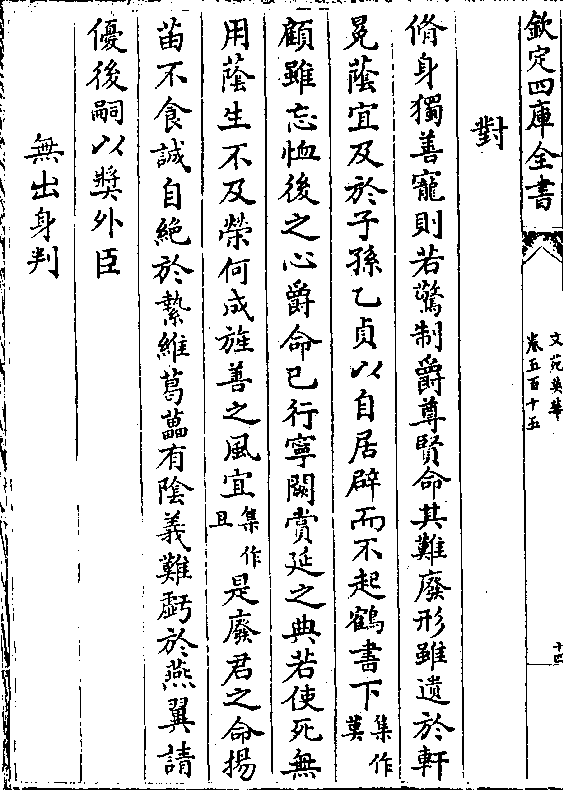 欽定四庫全書
文苑英華
卷五百十五
十四
對
脩身獨善寵則若驚制爵尊賢命其難廢形雖遺於軒
冕蔭宜及於子孫乙貞以自居辟而不起鶴書下集作莫
顧雖忘恤後之心爵命已行寧闕賞延之典若使死無
用蔭生不及榮何成旌善之風宜集作且是廢君之命揚
苗不食誠自絶於縶維葛藟有陰義難虧於燕翼請
優後嗣以奬外臣
無出身判